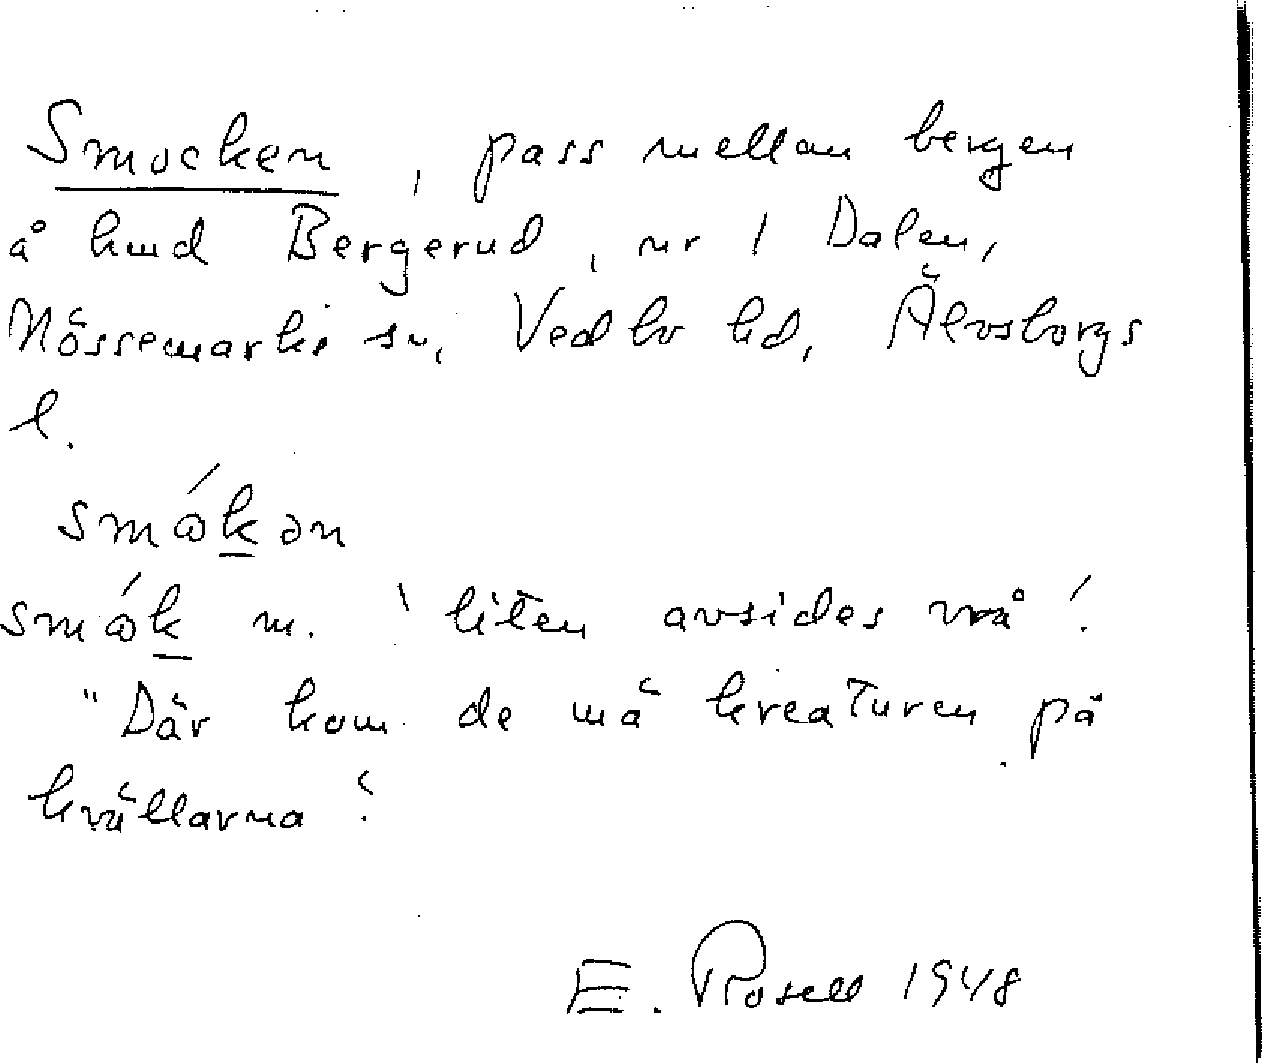 Smocken, pass mellan bergen
å hmd Bergerud, nr 1 Dalen,
Nössemarks sn, Vedbo hd, Älvsborgs
l.
smɷ́kən
smɷ́k m. 'liten avsides vrå'.
"Där kom de mä kreaturen på
kvällarna".
E. Rosell 1948